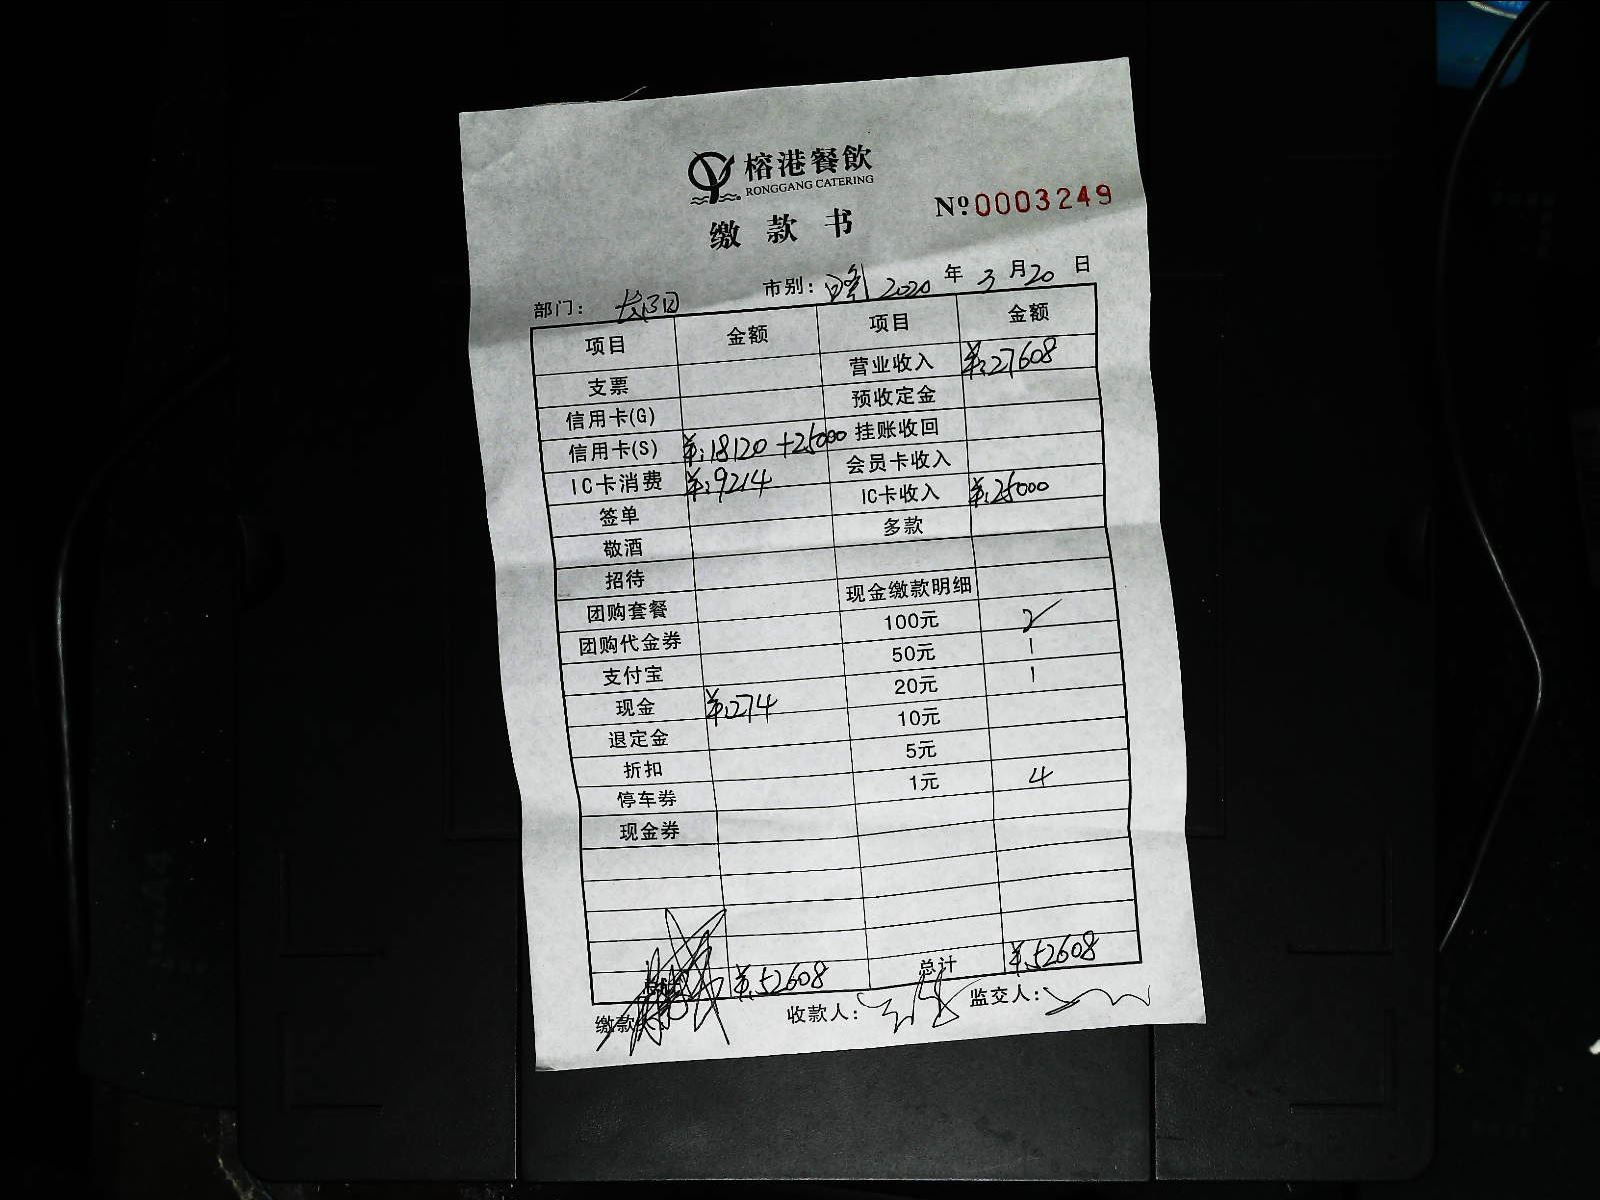 榕港餐飲
RONGGANG CATERING
№0003249
缴款书
部门： 市别： 2020 年 3 月 20 日
项目 金额 项目 金额
支票 营业收入 ¥:27608
信用卡(G) 预收定金
信用卡(S) ¥:18120+25000 挂账收回
IC卡消费 ¥:9214 会员卡收入
签单 IC卡收入 ¥:25000
敬酒 多款
招待
团购套餐 现金缴款明细
团购代金券 100元 2
支付宝 50元 1
现金 ¥:274 20元 1
退定金 10元
折扣 5元
停车券 1元 4
现金券
¥:52608 总计 ¥:52608
缴款 收款人： 监交人：